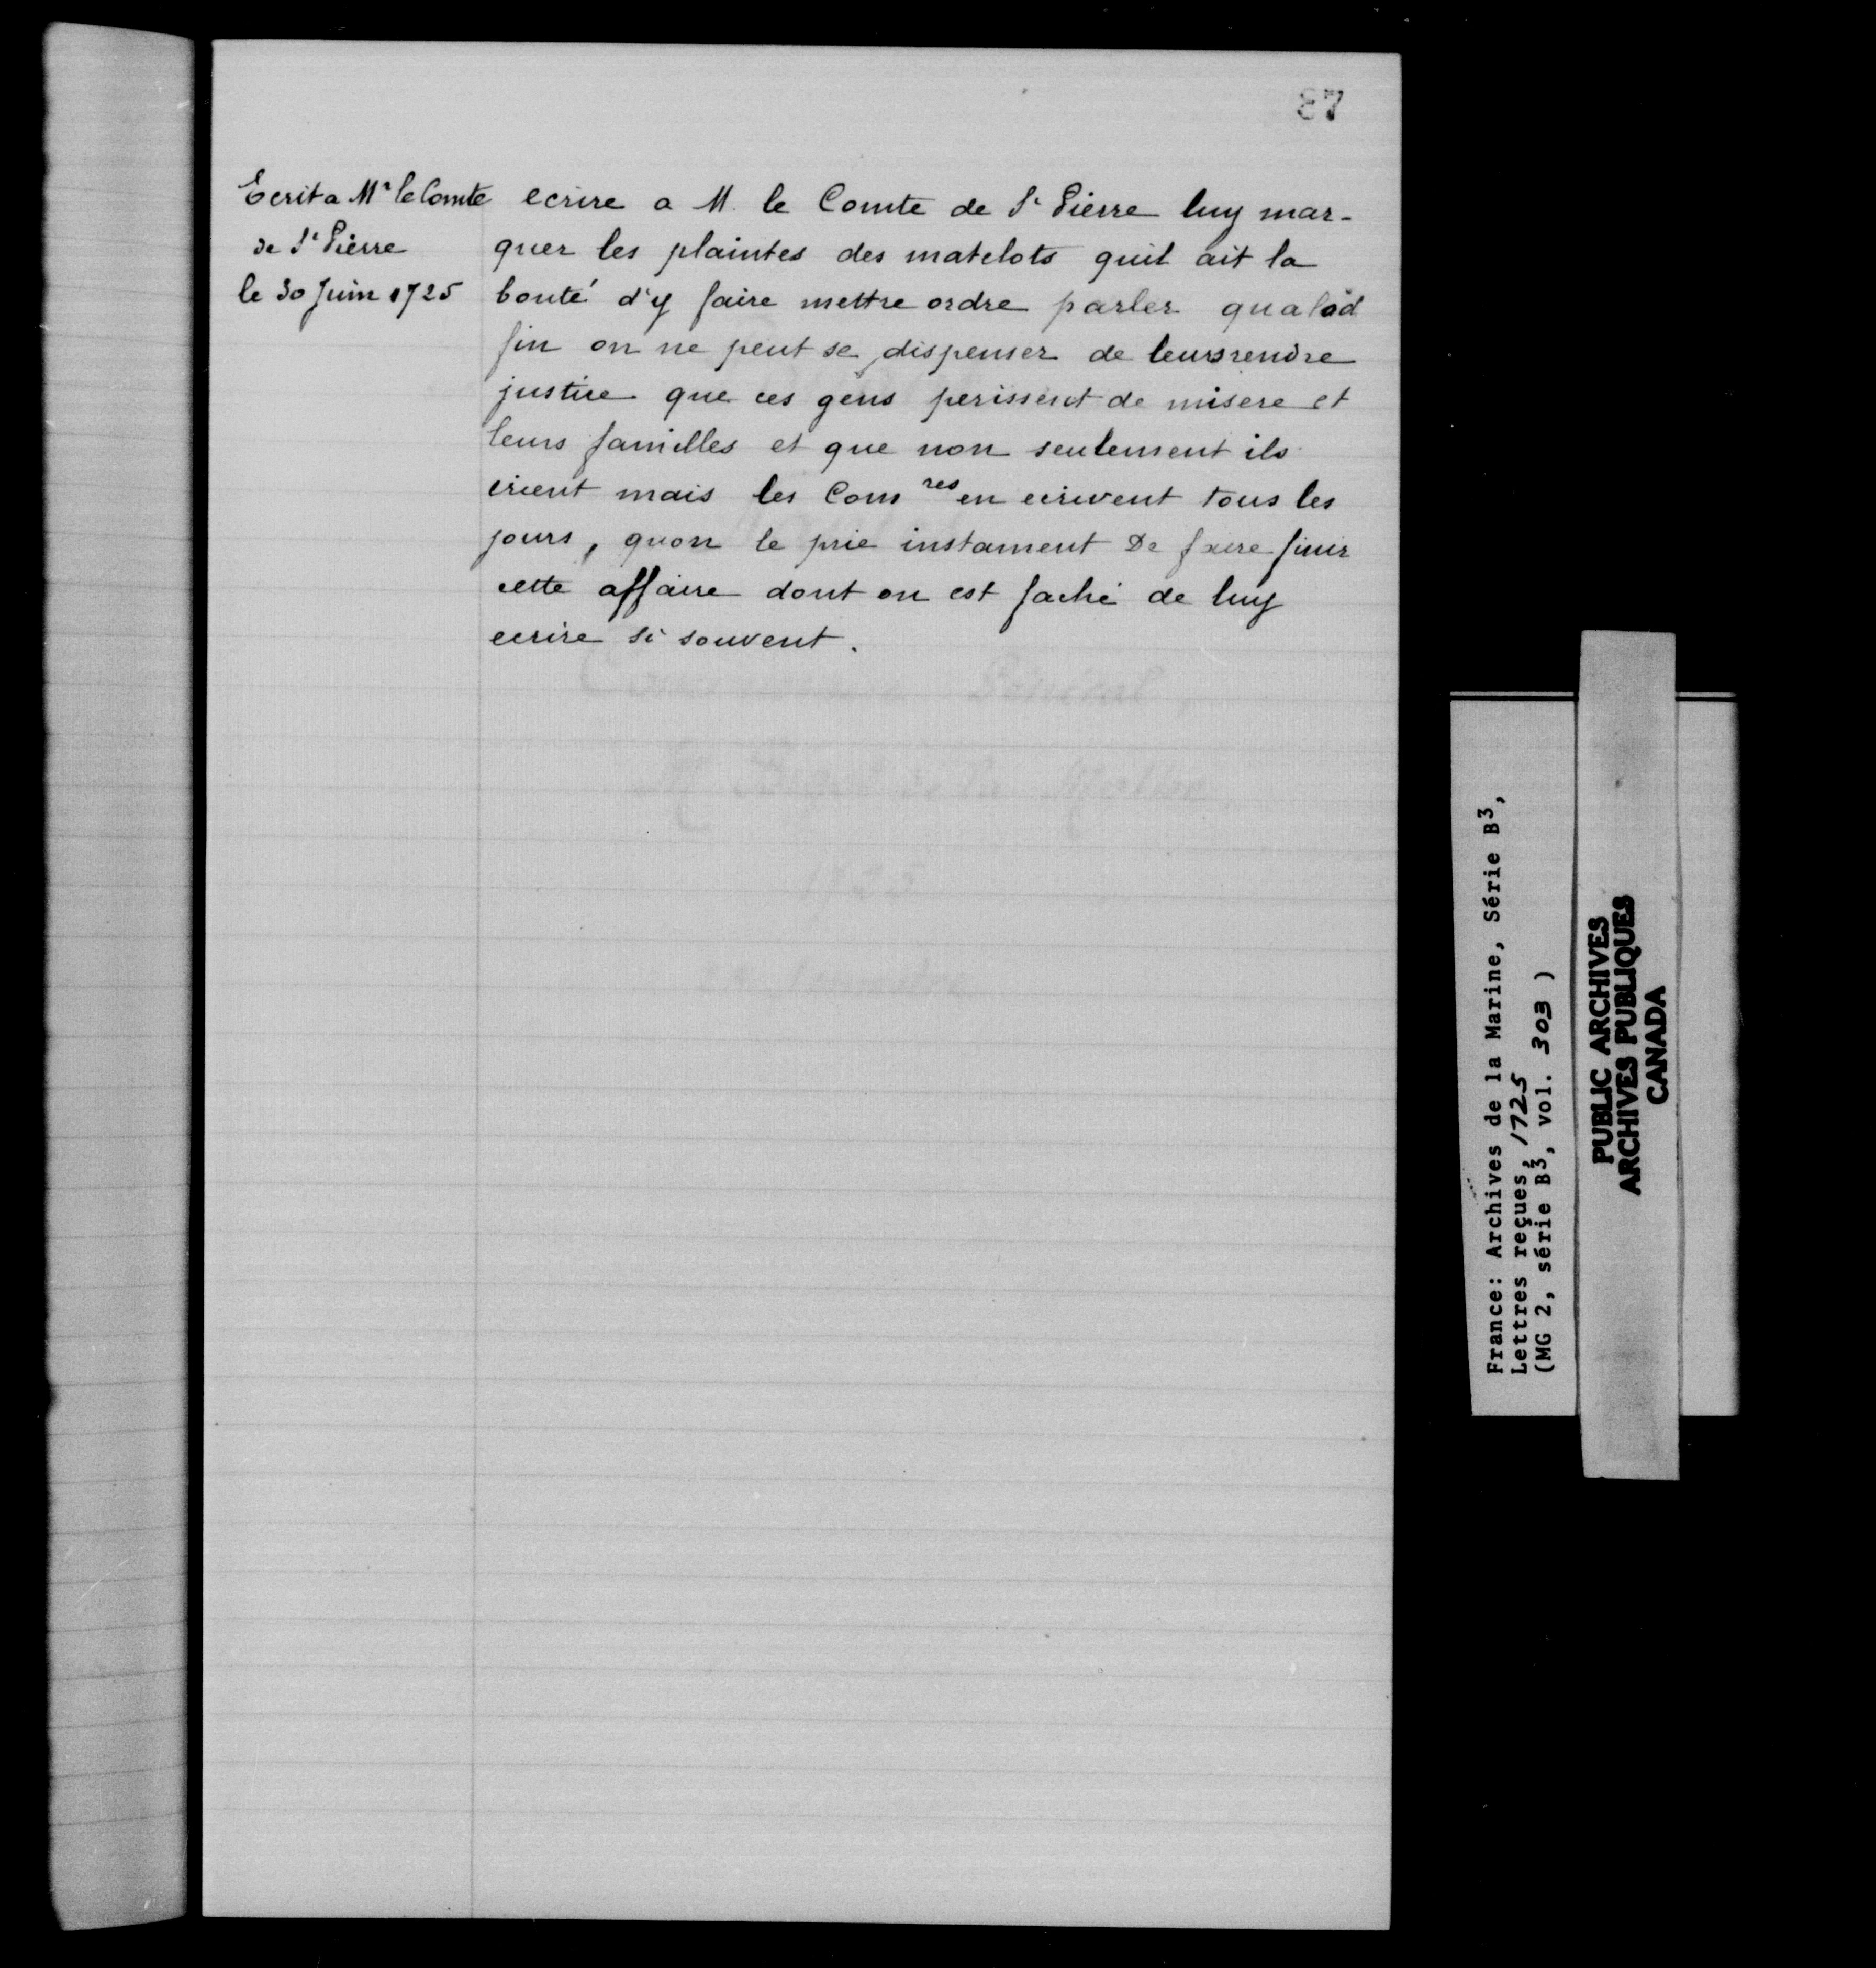 87
Ecrit a Mr le Comte
de St Pierre
le 30 Juin 1725
ecrire a M. le Comte de St Pierre luy mar-
quer les plaintes des matelots quil ait la
bonté d'y faire mettre ordre parler qua la d
fin on ne peut se dispenser de leurs rendre
justice que ces gens perissent de misere et
leurs familles et que non seulement ils
crient mais les Comres en ecrivent tous les
jours, quon le prie instament De faire finir
cette affaire dont on est faché de luy
ecrire si souvent.
Général,
1725
France: Archives de la Marine, Série B3,
Lettres reçues, 1725
(MG 2, série B3, vol. 303 )
PUBLIC ARCHIVES
ARCHIVES PUBLIQUES
CANADA